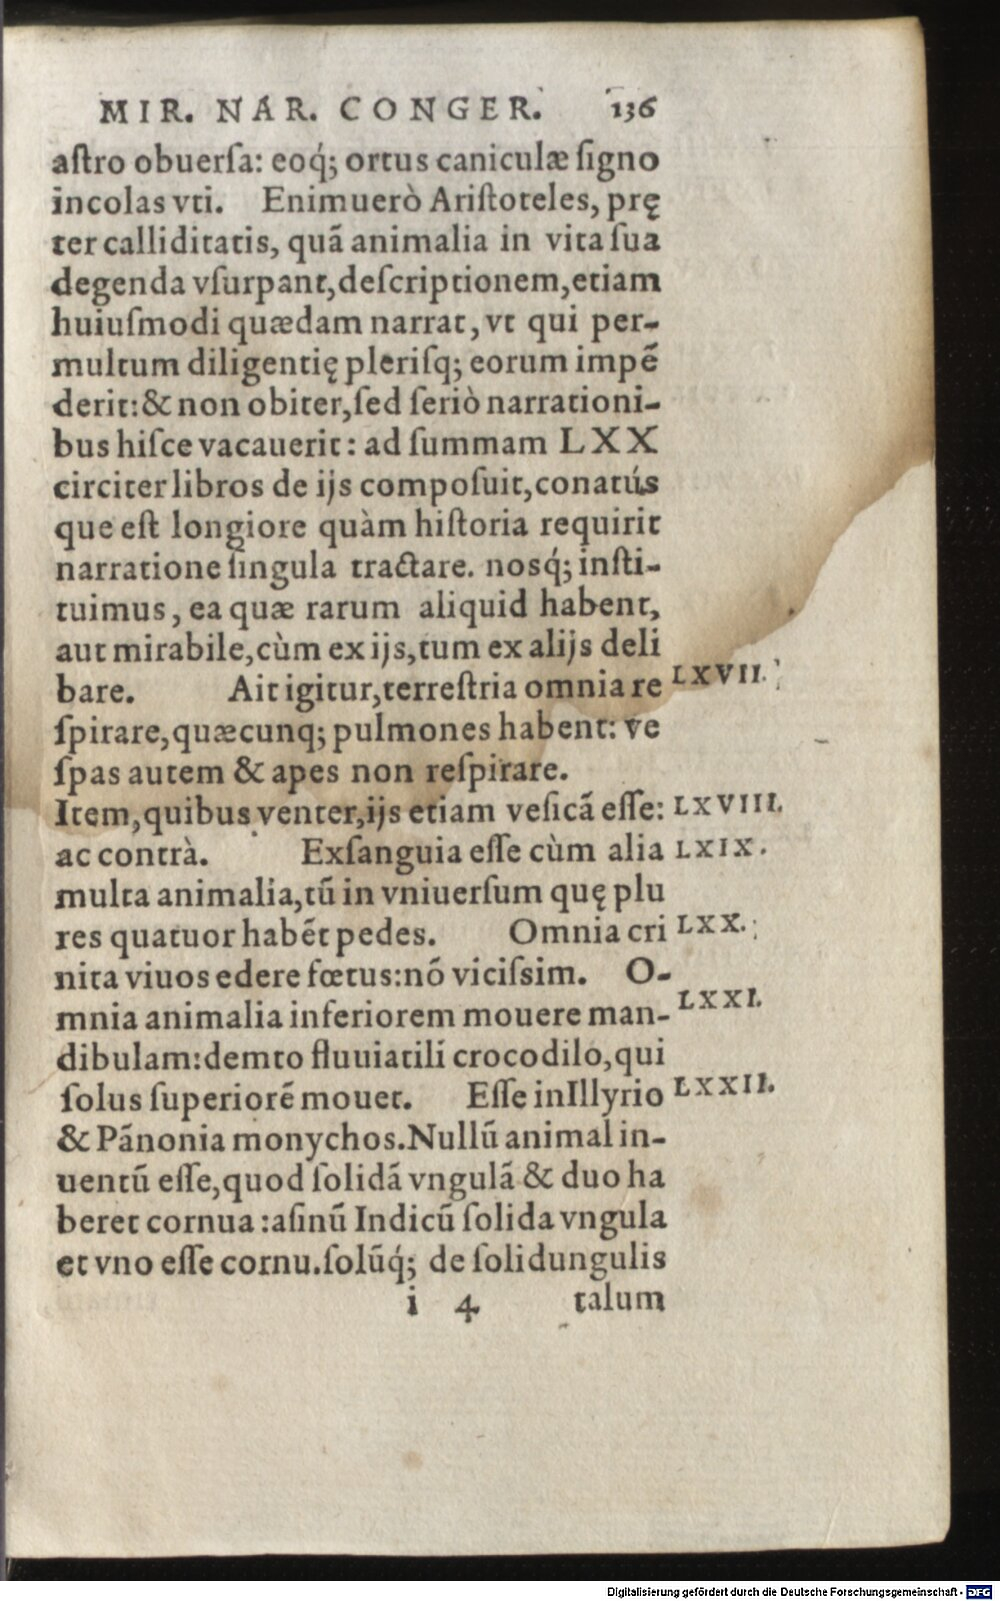 MIR. NAR. CONGER. 136
astro obuersa: eoq́; ortus caniculæ signo
incolas vti. Enimuerò Aristoteles, prę
ter calliditatis, quã animalia in vita sua
degenda vsurpant, descriptionem, etiam
huiusmodi quædam narrat, vt qui per-
multum diligentię plerisq; eorum impẽ
derit: & non obiter, sed seriò narrationi-
bus hisce vacauerit: ad summam LXX
circiter libros de ijs composuit, conatús
que est longiore quàm historia requirit
narratione singula tractare. nosq́; insti-
tuimus, ea quæ rarum aliquid habent,
aut mirabile, cùm ex ijs, tum ex alijs deli
bare. Ait igitur, terrestria omnia re LXVII.
spirare, quæcunq; pulmones habent: ve
spas autem & apes non respirare.
Item, quibus venter, ijs etiam vesicã esse: LXVIII.
ac contrà. Exsanguia esse cùm alia LXIX.
multa animalia, tũ in vniuersum quę plu
res quatuor habẽt pedes. Omnia cri LXX.
nita viuos edere fœtus: nõ vicissim. O-
mnia animalia inferiorem mouere man- LXXI.
dibulam: demto fluuiatili crocodilo, qui
solus superiorẽ mouet. Esse in Illyrio LXXII.
& Pãnonia monychos. Nullũ animal in-
uentũ esse, quod solidã vngulã & duo ha
beret cornua: asinũ Indicũ solida vngula
et vno esse cornu. solũq́; de solidungulis
i 4 talum
Digitalisierung gefördert durch die Deutsche Forschungsgemeinschaft - DFG